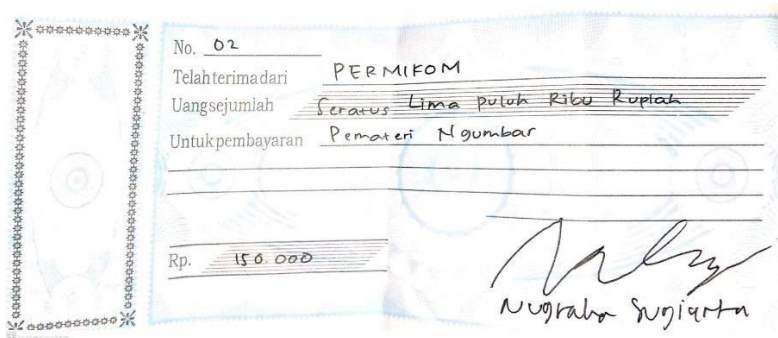 No. 02
Telah terima dari PERMIKOM
Uang sejumlah Seratus Lima puluh Ribu Rupiah
Untuk pembayaran Pemateri Ngumbar
Rp. 150.000
Nugraha Sugiarta